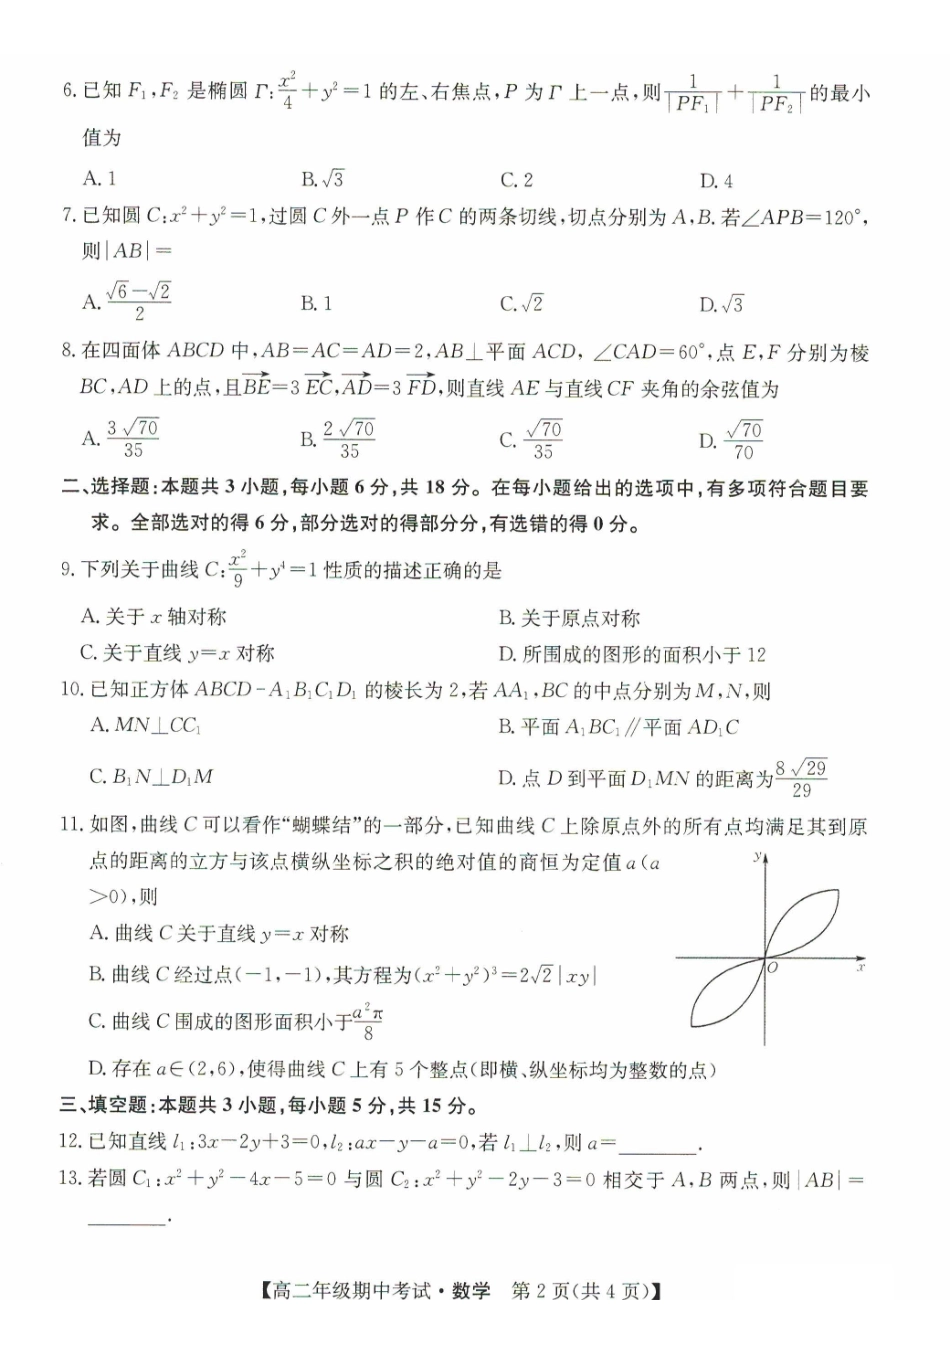 6. 已知 F₁,F₂ 是椭圆 Γ:x²/4+y²=1 的左、右焦点,P 为 Γ 上一点,则 1/|PF₁|+1/|PF₂| 的最小
值为
A. 1 B. √3 C. 2 D. 4
7. 已知圆 C:x²+y²=1,过圆 C 外一点 P 作 C 的两条切线,切点分别为 A,B. 若∠APB=120°,
则|AB|=
A. (√6-√2)/2 B. 1 C. √2 D. √3
8. 在四面体 ABCD 中,AB=AC=AD=2,AB⊥平面 ACD, ∠CAD=60°,点 E,F 分别为棱
BC,AD 上的点,且\overrightarrow{BE}=3\overrightarrow{EC},\overrightarrow{AD}=3\overrightarrow{FD},则直线 AE 与直线 CF 夹角的余弦值为
A. 3√70/35 B. 2√70/35 C. √70/35 D. √70/70
二、选择题:本题共 3 小题,每小题 6 分,共 18 分。在每小题给出的选项中,有多项符合题目要
求。全部选对的得 6 分,部分选对的得部分分,有选错的得 0 分。
9. 下列关于曲线 C:x²/9+y⁴=1 性质的描述正确的是
A. 关于 x 轴对称 B. 关于原点对称
C. 关于直线 y=x 对称 D. 所围成的图形的面积小于 12
10. 已知正方体 ABCD-A₁B₁C₁D₁ 的棱长为 2,若 AA₁,BC 的中点分别为 M,N,则
A. MN⊥CC₁ B. 平面 A₁BC₁∥平面 AD₁C
C. B₁N⊥D₁M D. 点 D 到平面 D₁MN 的距离为8√29/29
11. 如图,曲线 C 可以看作“蝴蝶结”的一部分,已知曲线 C 上除原点外的所有点均满足其到原
点的距离的立方与该点横纵坐标之积的绝对值的商恒为定值 a(a
>0),则
A. 曲线 C 关于直线 y=x 对称
B. 曲线 C 经过点(-1,-1),其方程为(x²+y²)³=2√2|xy|
C. 曲线 C 围成的图形面积小于a²π/8
D. 存在 a∈(2,6),使得曲线 C 上有 5 个整点(即横、纵坐标均为整数的点)
y
O
x
三、填空题:本题共 3 小题,每小题 5 分,共 15 分。
12. 已知直线 l₁:3x-2y+3=0,l₂:ax-y-a=0,若 l₁⊥l₂,则 a=________.
13. 若圆 C₁:x²+y²-4x-5=0 与圆 C₂:x²+y²-2y-3=0 相交于 A,B 两点,则|AB|=
________.
【高二年级期中考试·数学 第 2 页(共 4 页)】